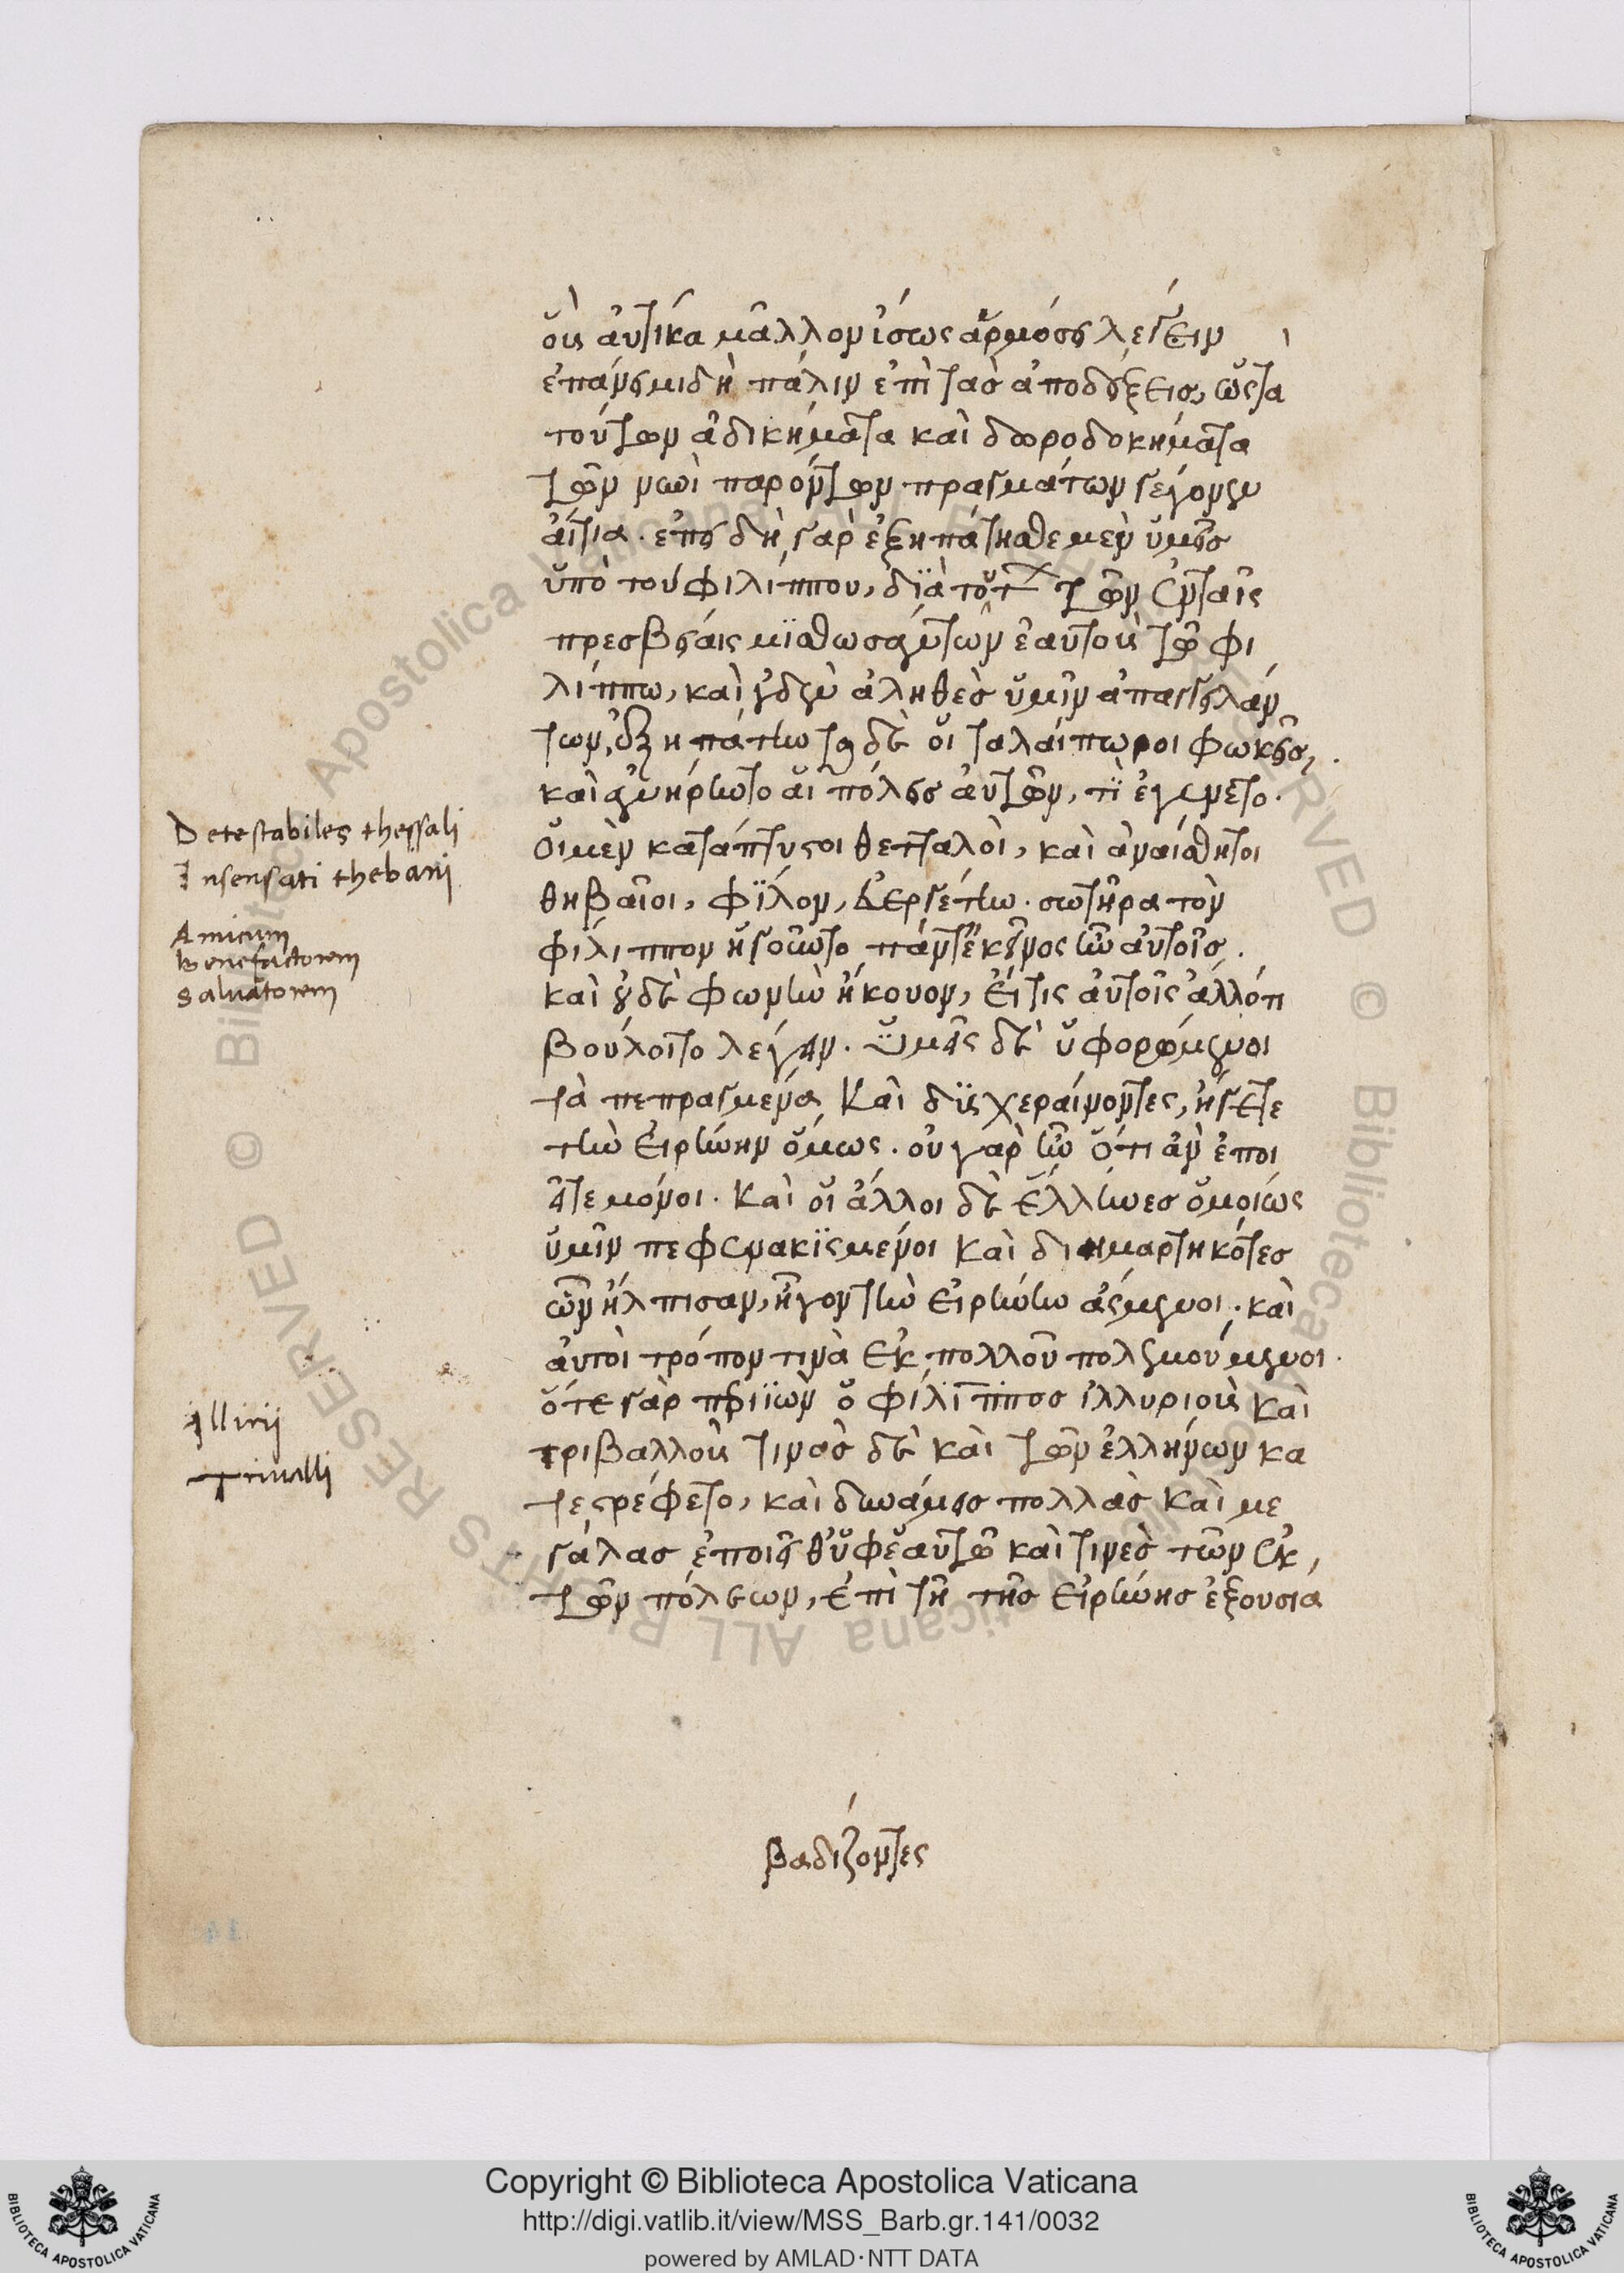 οἷς αὐτίκα μᾶλλον ἴσως ἁρμόσει λέγειν
ἐπάνειμι δὴ πάλιν ἐπὶ τὰς ἀποδείξεις, ὡς τὰ
τούτων ἀδικήματα καὶ δωροδοκήματα
τῶν νυνὶ παρόντων πραγμάτων γέγονεν
αἴτια. ἐπειδὴ γὰρ ἐξηπάτησθε μὲν ὑμεῖς
ὑπὸ τοῦ φιλίππου, διὰ τούτων τῶν ἐν ταῖς
πρεσβείαις μισθωσάντων ἑαυτοὺς τῶ φι
λίππω, καὶ οὐδὲν ἀληθὲς ὑμῖν ἀπαγγειλάν
των, ἐξηπάτηντο δὲ οἱ ταλαίπωροι φωκεῖς,
καὶ ἀνήρηντο αἱ πόλεις αὐτῶν, τί ἐγένετο.
οἱ μὲν κατάπτυστοι θετταλοὶ, καὶ ἀναίσθητοι
θηβαῖοι, φίλον, εὐεργέτην. σωτῆρα τὸν
φίλιππον ἡγοῦντο πάντ' ἐκεῖνος ἦν αὐτοῖς.
καὶ οὐδὲ φωνὴν ἤκουον, εἴ τις αὐτοῖς ἄλλό τι
βούλοιτο λέγειν. ὑμεῖς δὲ ὑφορώμενοι
τὰ πεπραγμένα καὶ δυσχεραίνοντες, ἤγετε
τὴν εἰρήνην ὅμως. οὐ γὰρ ἦν ὅ τι ἂν ἐποι
εῖτε μόνοι. καὶ οἱ ἄλλοι δὲ ἕλληνες ὁμοίως
ὑμῖν πεφενακισμένοι καὶ διημαρτηκότες
ὧν ἤλπισαν, ἦγον τὴν εἰρήνην ἄσμενοι. καὶ
αὐτοὶ τρόπον τινὰ ἐκ πολλοῦ πολεμούμενοι.
ὅτε γὰρ περιϊὼν ὁ φίλιππος ἰλλυριοὺς καὶ
τριβαλλοὺς τινὰς δὲ καὶ τῶν ἑλλήνων κα
τεστρέφετο, καὶ δυνάμεις πολλὰς καὶ με
γάλας ἐποιεῖθ' ὑφ' ἑαυτῶ καὶ τινὲς τῶν ἐκ
τῶν πόλεων, ἐπὶ τῆ τῆς εἰρήνης ἐξουσία
βαδίζοντες
Detestabiles thessali
Insensati thebani
Amicum
Benefactorem
Salvatorem
illirij
Trivalli
© Biblioteca Apostolica Vaticana ALL RIGHTS RESERVED
Copyright © Biblioteca Apostolica Vaticana
http://digi.vatlib.it/view/MSS_Barb.gr.141/0032
powered by AMLAD·NTT DATA
BIBLIOTECA APOSTOLICA VATICANA
BIBLIOTECA APOSTOLICA VATICANA